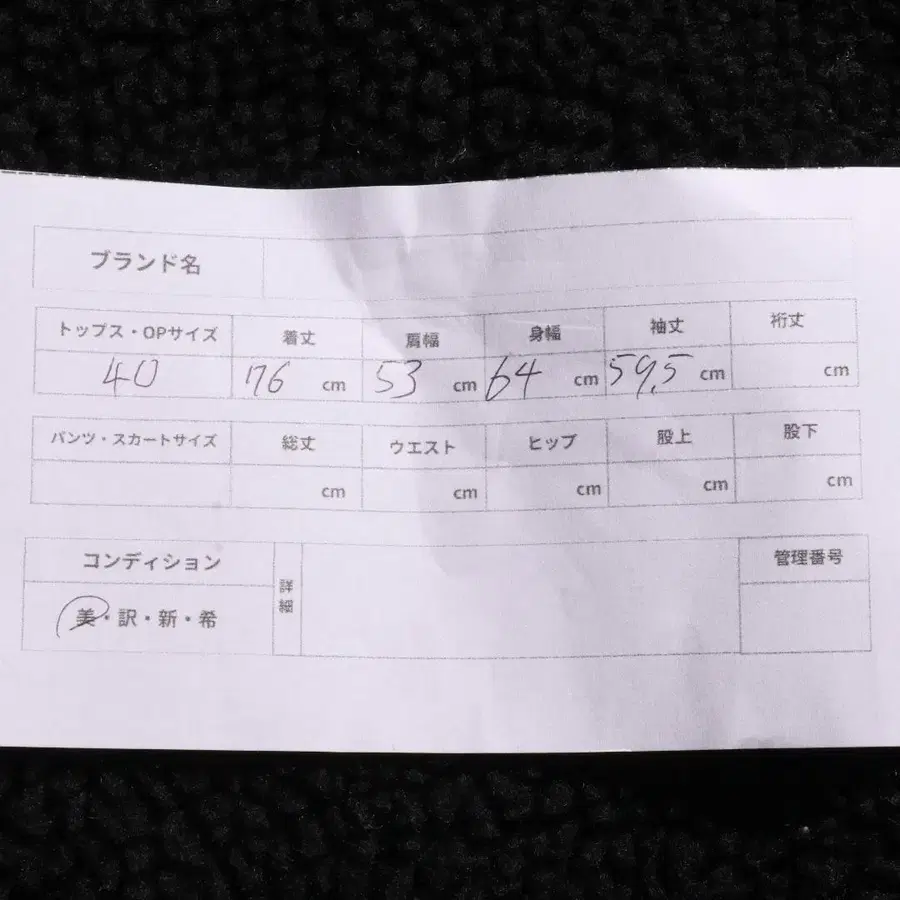 ブランド名
トップス・OPサイズ 着丈 肩幅 身幅 袖丈 裄丈
40 76 cm 53 cm 64 cm 59.5 cm cm
パンツ・スカートサイズ 総丈 ウエスト ヒップ 股上 股下
cm cm cm cm cm
コンディション 詳細 管理番号
美・訳・新・希